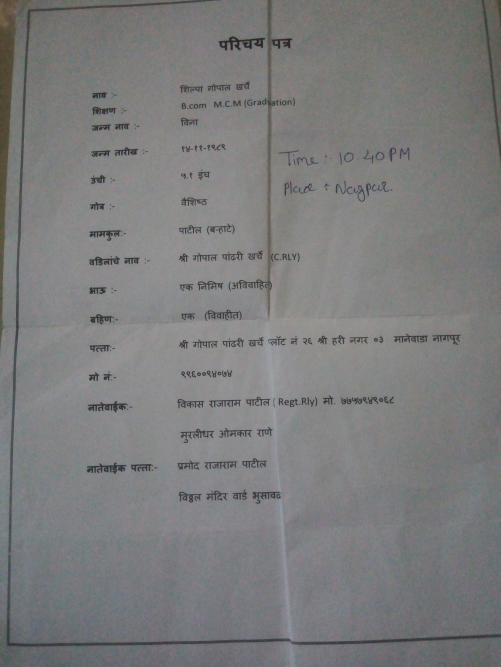 परिचय पत्र
नाव :- शिल्पा गोपाल खर्चे
शिक्षण :- B.com M.C.M (Graduation)
जन्म नाव :- विना
जन्म तारीख :- १४-११-१९८९
Time :- 10.40 PM
उंची :- ५.१ इंच
Place : Nagpur.
गोत्र :- वैशिष्ठ
मामकुल:- पाटील (बऱ्हाटे)
वडिलांचे नाव :- श्री गोपाल पांढरी खर्चे (C.RLY)
भाऊ :- एक निमिष (अविवाहित)
बहिण:- एक (विवाहीत)
पत्ता:- श्री गोपाल पांढरी खर्चे प्लॉट नं २६ श्री हरी नगर ०३ मानेवाडा नागपूर
मो नं:- ९९६००९४०७४
नातेवाईक:- विकास राजाराम पाटील ( Regt.Rly) मो. ७७५७९४९०६८
मुरलीधर ओमकार राणे
नातेवाईक पत्ता:- प्रमोद राजाराम पाटील
विठ्ठल मंदिर वार्ड भुसावळ